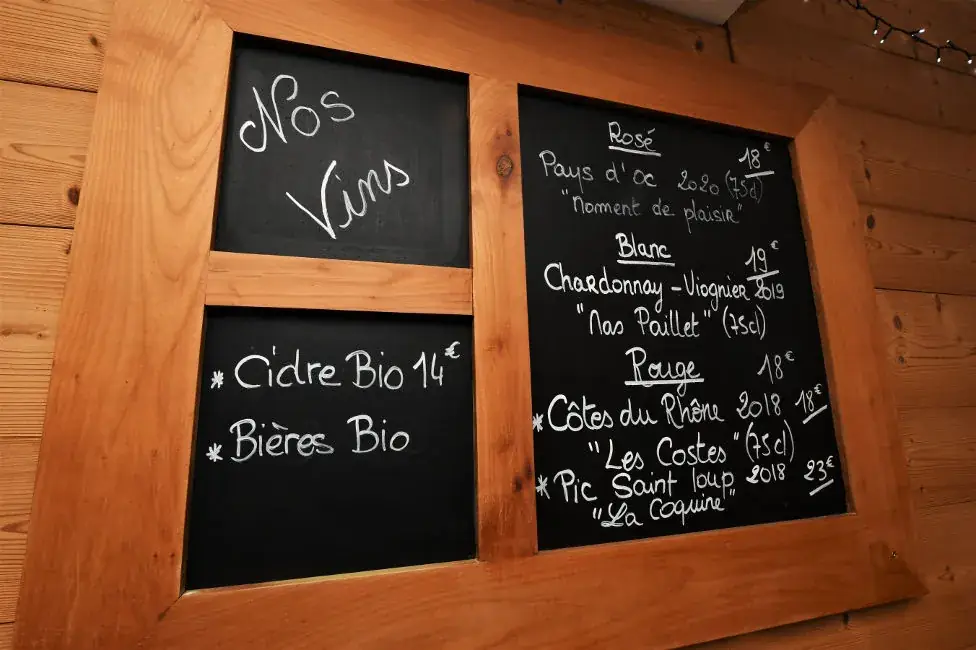 Nos
Vins
* Cidre Bio 14€
* Bières Bio
Rosé
18€
Pays d'oc 2020 (75cl)
"Moment de plaisir"
Blanc
19€
Chardonnay - Viognier 2019
"Mas Paillet" (75cl)
Rouge 18€
* Côtes du Rhône 2018 18€
"Les Costes" (75cl)
* Pic Saint loup 2018 23€
"La Coquine"